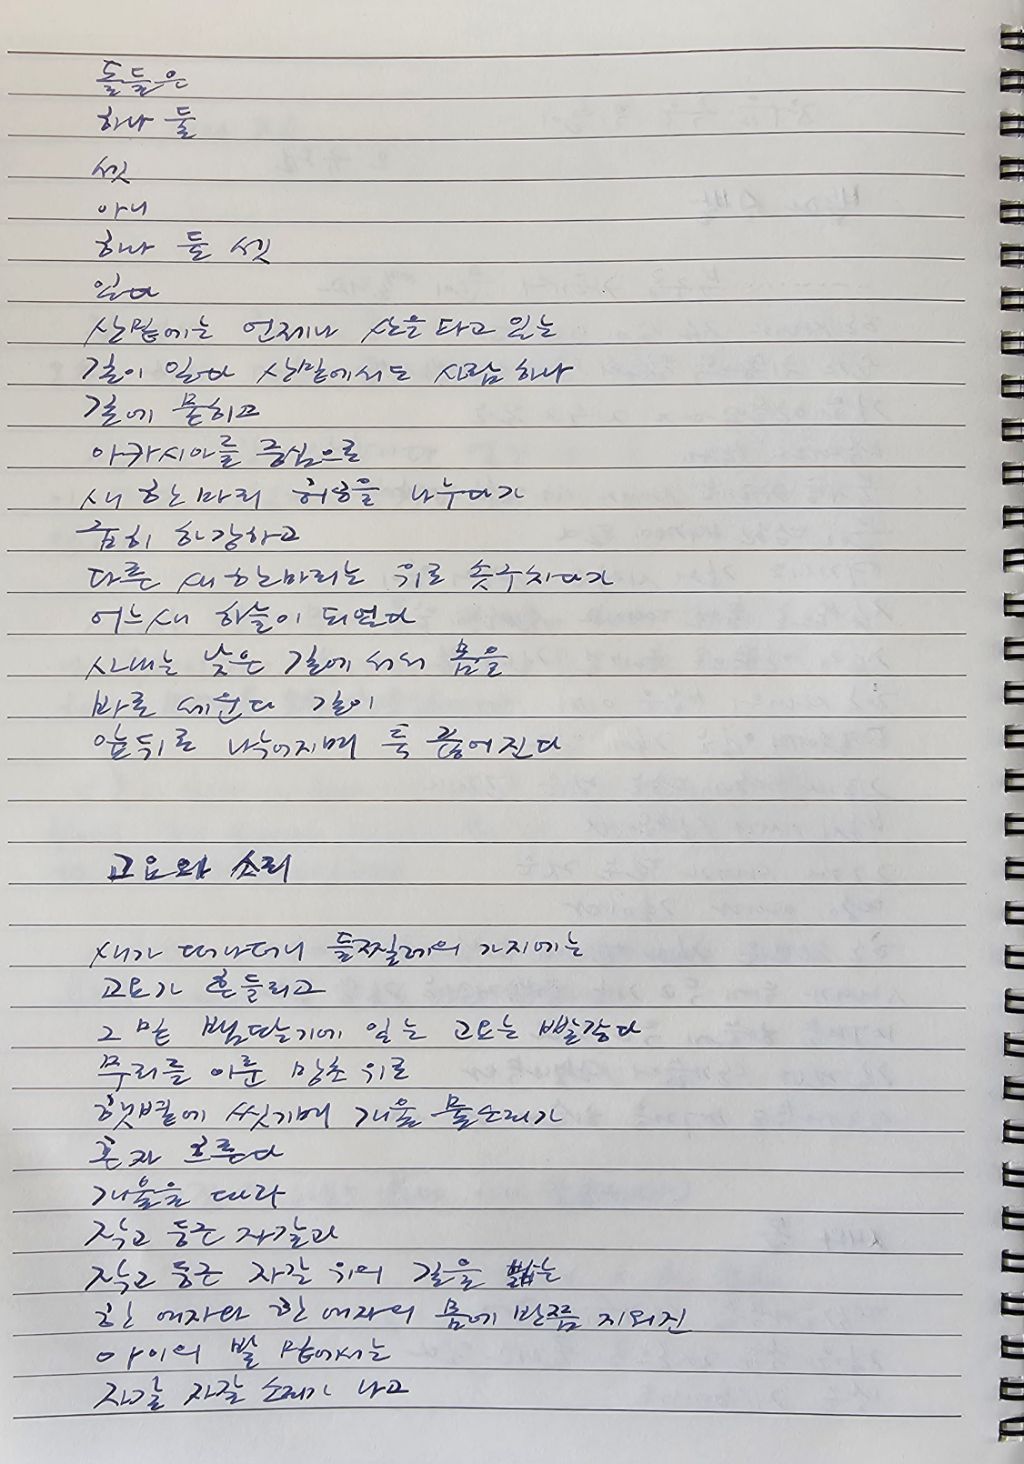 돌들은
하나 둘
셋
아니
하나 둘 셋
있다
산밑에는 언제나 산을 타고 있는
길이 있다 산밑에서도 사람 하나
길에 묻히고
아카시아를 중심으로
새 한마리 허공을 나누다가
급히 하강하고
다른 새 한마리는 위로 솟구치다가
어느새 하늘이 되었다
사내는 낮은 길에 서서 몸을
바로 세운다 길이
앞뒤로 나누어지며 툭 끊어진다
고요와 소리
새가 떠나더니 들찔레의 가지에는
고요가 흔들리고
그 밑 뱀딸기에 있는 고요는 빨갛다
무리를 이룬 망초 위로
햇볕에 씻기며 개울 물소리가
혼자 흐른다
개울을 따라
작고 둥근 자갈과
작고 둥근 자갈 위의 길을 밟는
한 여자와 한 여자의 몸에 반쯤 지워진
아이의 발 밑에서는
자갈 자갈 소리가 나고